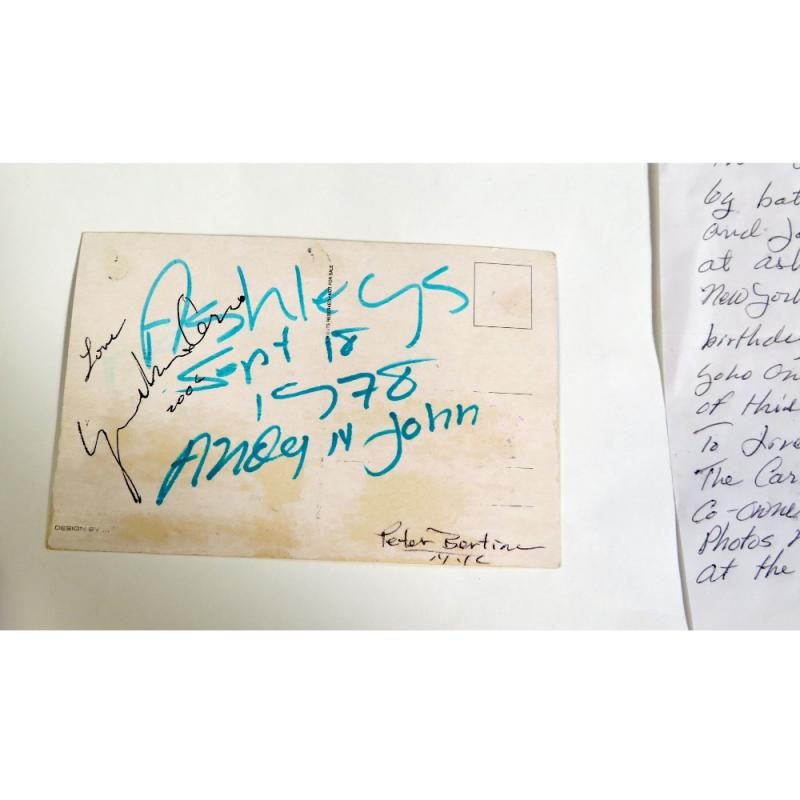 Ashleys
Sept 18
1978
Andy N John
Love
2006
DESIGN BY ...
Peter Bertine
NYC
by bat
and Jo
at ash
New York
birthda
Yoko On
of this
To
The Car
Co-owne
Photos
at the